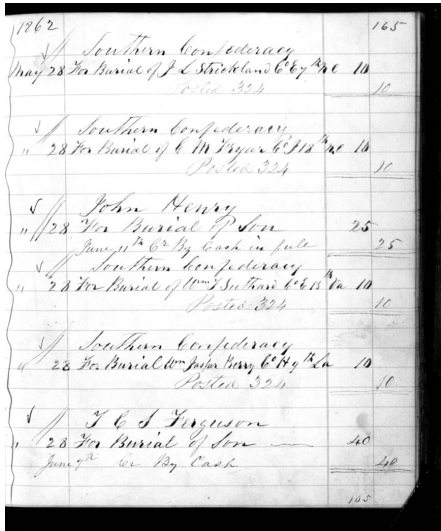 1862 165
Southern Confederacy
May 28 For Burial of J L Strickland Co E 7th N C 10
Posted 324 10
Southern Confederacy
" 28 For Burial of C M Fryar Co I 18th N C 10
Posted 324 10
John Henry
" 28 For Burial of Son 25
June 11th Cr By Cash in full 25
Southern Confederacy
" 28 For Burial of Wm Southard Co E 13th Va 10
Posted 324 10
Southern Confederacy
28 For Burial Wm Jasper Berry Co H 9th La 10
Posted 324 10
T C S Ferguson
" 28 For Burial of Son 40
June 7th Cr By Cash 40
105